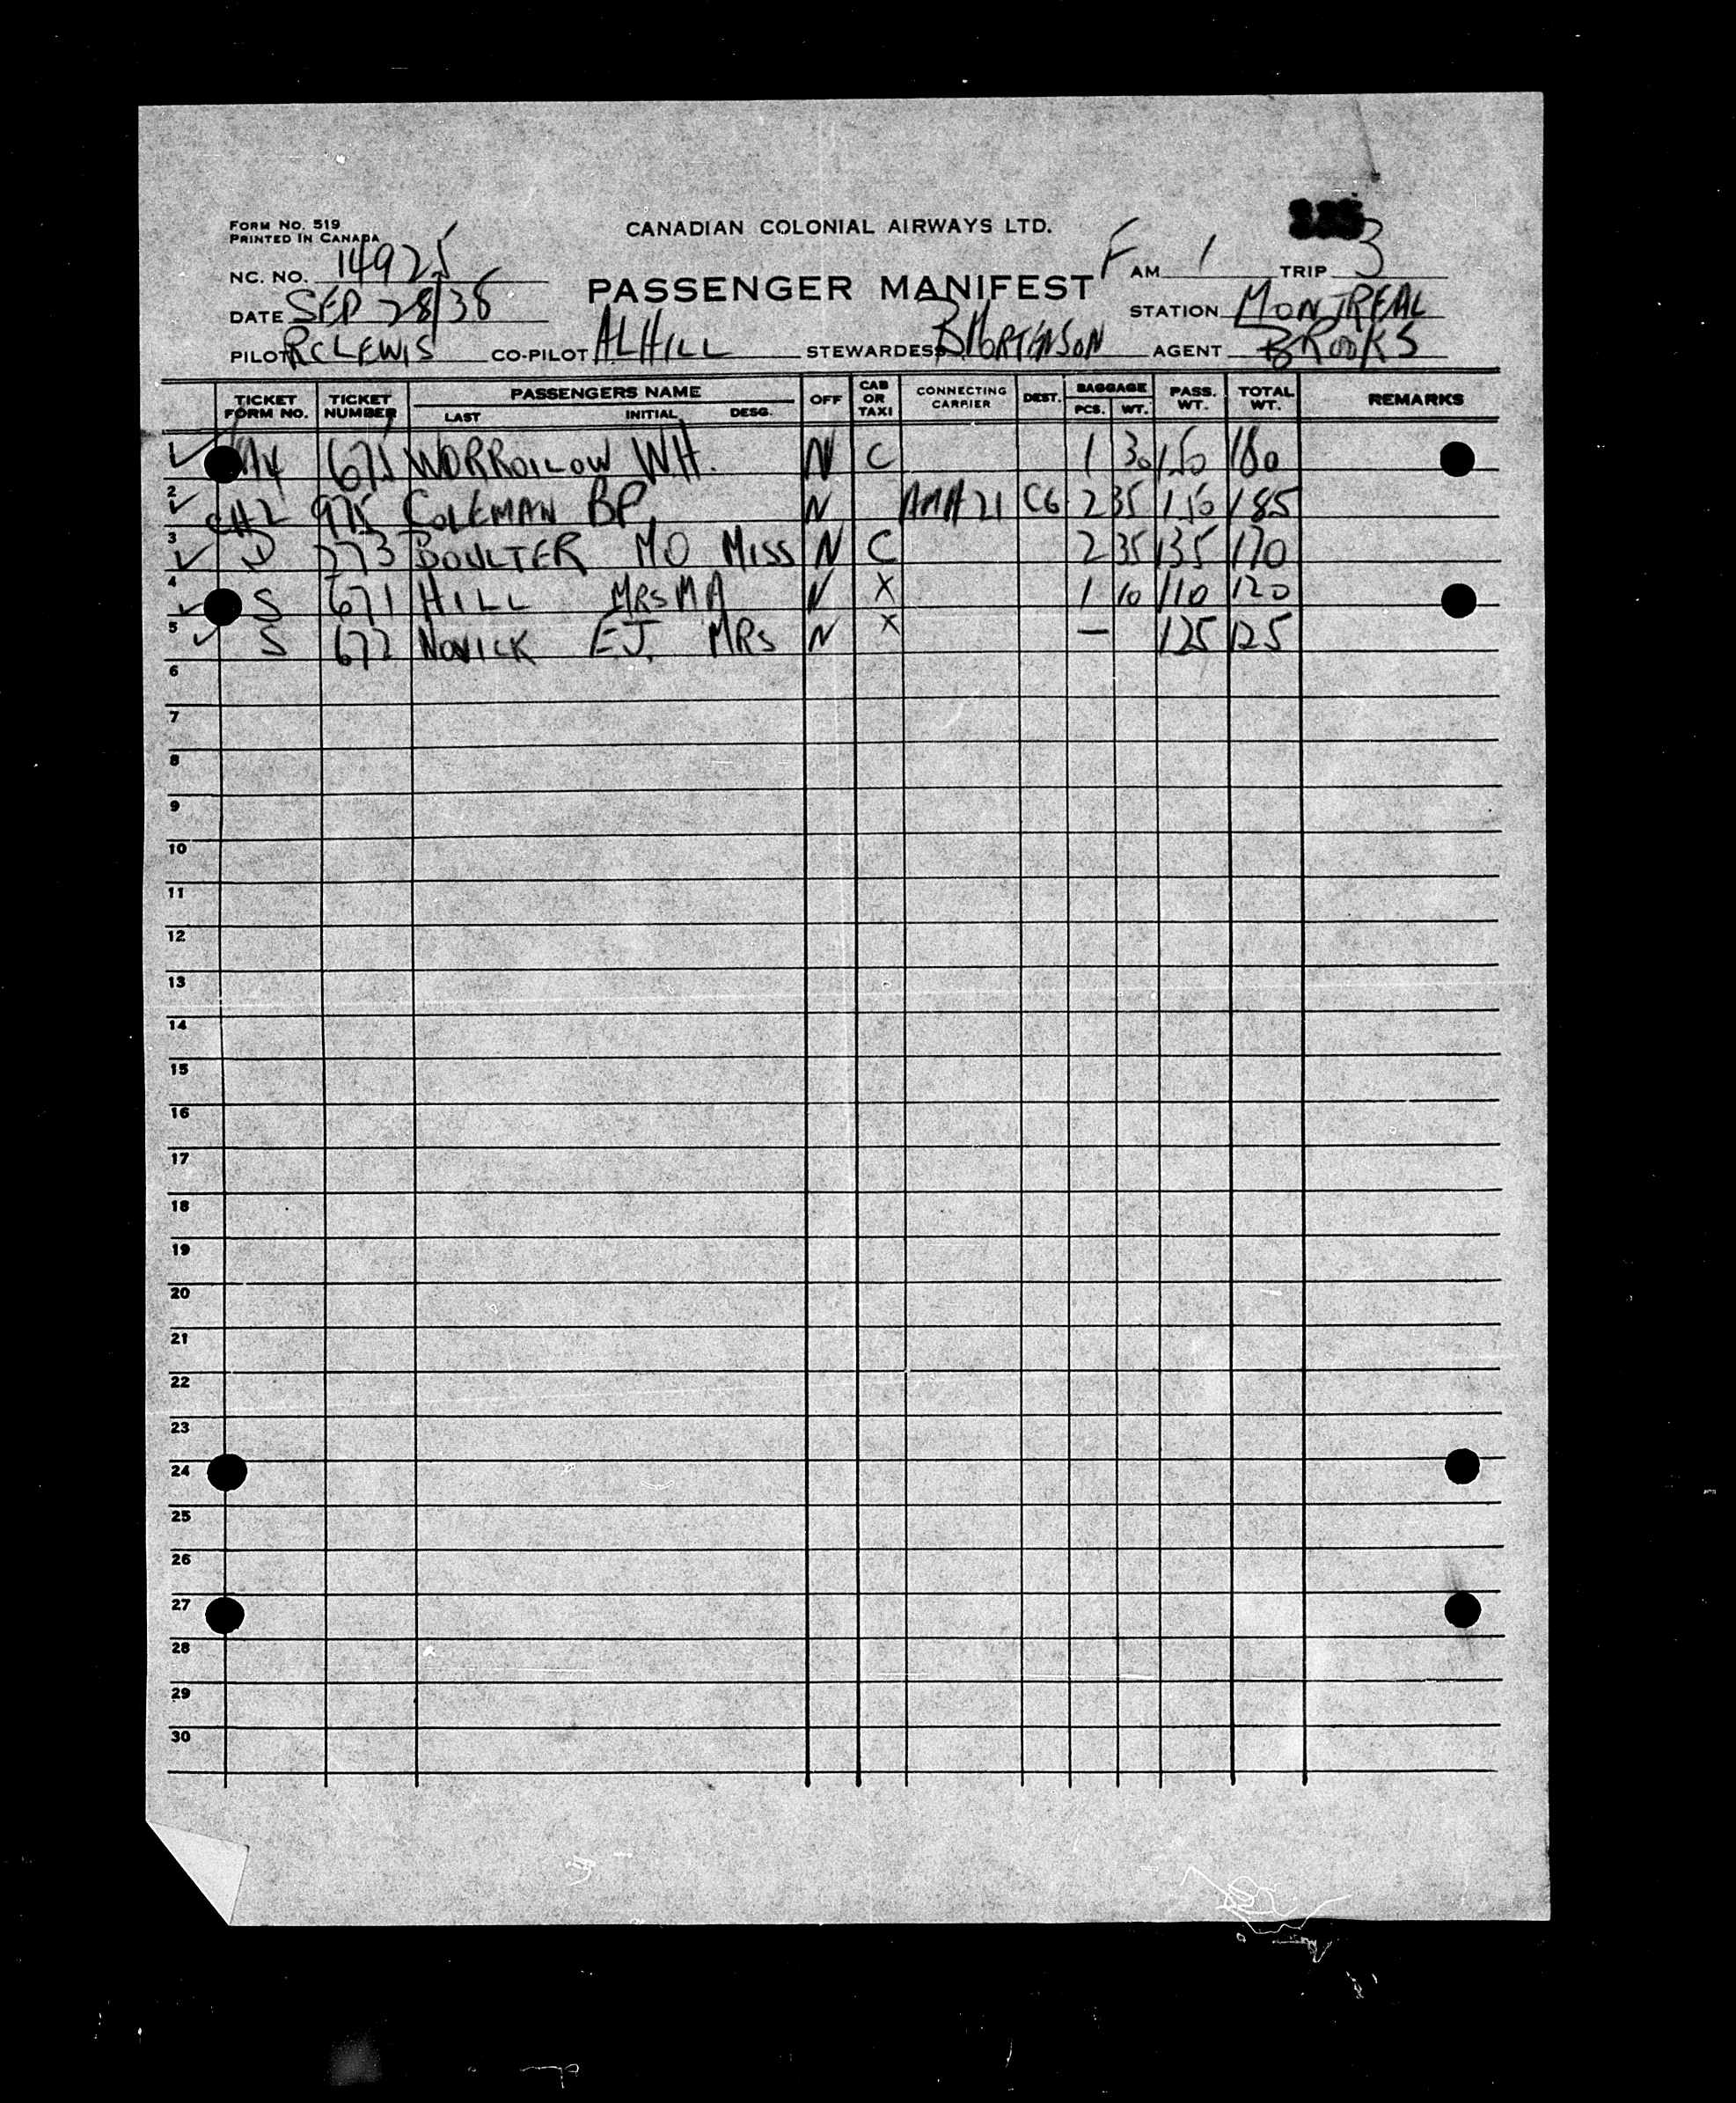 FORM NO. 519
PRINTED IN CANADA
CANADIAN COLONIAL AIRWAYS LTD.
NC. NO. 14925
PASSENGER MANIFEST
F AM 1 TRIP 3
DATE SEP 28/38
STATION MONTREAL
PILOT RC LEWIS CO-PILOT AL HILL STEWARDESS B MORTENSON AGENT BROOKS
TICKET FORM NO. TICKET NUMBER PASSENGERS NAME LAST INITIAL DESG. OFF CAB OR TAXI CONNECTING CARRIER DEST. BAGGAGE PCS. WT. PASS. WT. TOTAL WT. REMARKS
1 A4 675 WORROILOW WH. N C 1 30 150 180
2 CA2 975 COLEMAN BP. N AMA 21 CG 2 35 150 185
3 D 273 BOULTER MO MISS N C 2 35 135 170
4 S 671 HILL MRS MA N X 1 10 110 120
5 S 672 NOVICK EJ. MRS N X — 125 125
6
7
8
9
10
11
12
13
14
15
16
17
18
19
20
21
22
23
24
25
26
27
28
29
30